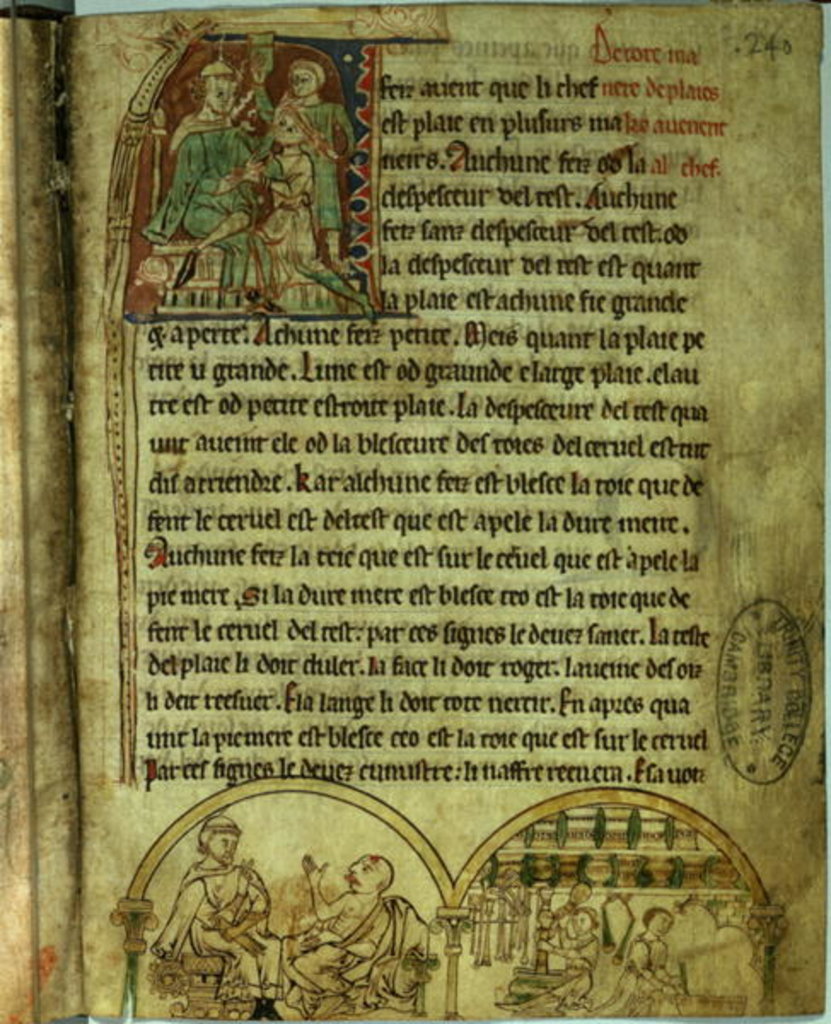 De tote ma
.240
fez avient que li chef nere de plaies
est plaie en plusurs ma ke avienent
neirs. Auchune fez od la al chef.
despesceur del test. Auchune
fez sanz despesceur del test. od
la despesceur del test est quant
la plaie est achune fie grande
& aperte. Achune fez petite. Meis quant la plaie pe
tite u grande. Lune est od graunde e large plaie. elau
tre est od petite estroite plaie. La despesceure del test qua
unt avient ele od la blesceure des toies del cervel est tut
dis a criendre. kar alchune fez est blesce la toie que de
fent le cervel est del test que est apele la dure mere.
Auchune fez la teie que est sur le cervel que est apele la
pie mere. Si la dure mere est blesce ceo est la toie que de
fent le cervel del test. par ces signes le devez saver. La teste
del plaie li doit duler. la face li doit roger. la veine des oiz
li deit. E la lange li doit tote nercir. En apres qua
unt la pie mere est blesce ceo est la toie que est sur le cervel
Par ces signes le devez cunustre: li naffre. E sa voiz
TRINITY COLLEGE
LIBRARY.
CAMBRIDGE